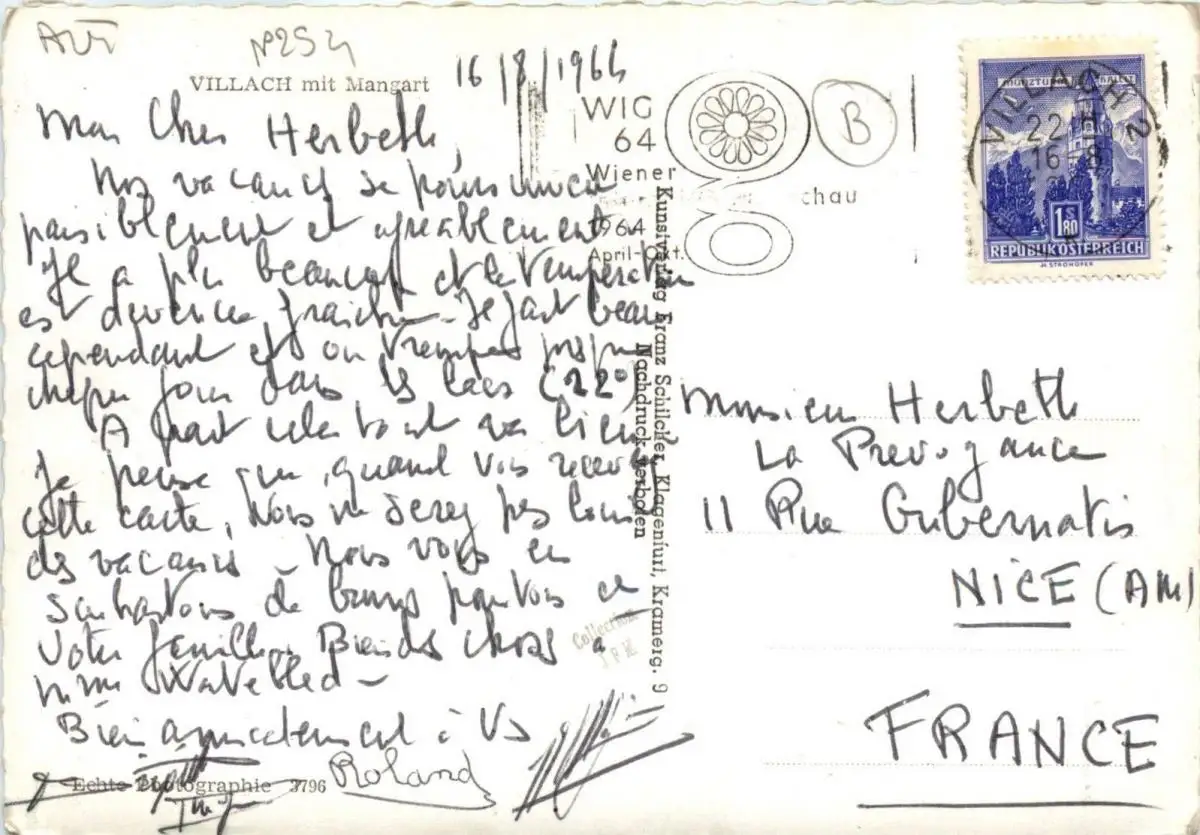 Aut
N°2521
VILLACH mit Mangart
16/8/1964
Mon Cher Herbeth,
Nos vacances se poursuivent
paisiblement et agréablement
Il a plu beaucoup et la température
est devenue fraiche. Il fait beau
cependant et on trempe
chaque jour dans les lacs (22°)
A part cela tout va bien
Je pense que, quand vous recevrez
cette carte, nous ne serez pas loin
des vacances. Nous vous en
souhaitons de bonnes pour vous et
votre famille. Bien des choses à
Mme
Bien amicalement à Vs
Roland
Echte Photographie 3796
Kunstverlag Franz Schilcher, Klagenfurt, Kramerg. 9
Nachdruck verboten
Collection
J P M
WIG
64
Wiener
schau
1964
April-Okt.
B
VILLACH 2
22 H
16-8
1 S 80
REPUBLIK ÖSTERREICH
H. STROHOFER
Monsieur Herbeth
La Prévoyance
11 Rue Gubernatis
NICE (AM)
FRANCE